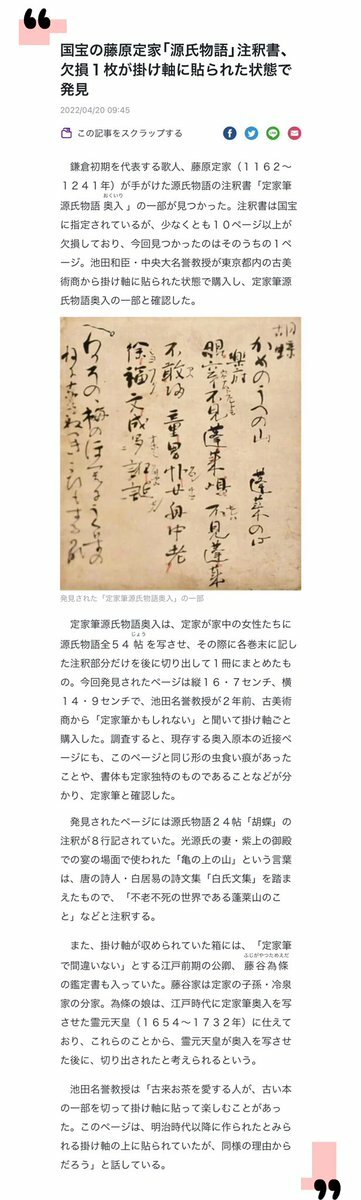 国宝の藤原定家「源氏物語」注釈書、
欠損1枚が掛け軸に貼られた状態で
発見
2022/04/20 09:45
この記事をスクラップする
鎌倉初期を代表する歌人、藤原定家（１１６２～
１２４１年）が手がけた源氏物語の注釈書「定家筆
おくいり
源氏物語奥入」の一部が見つかった。注釈書は国宝
に指定されているが、少なくとも１０ページ以上が
欠損しており、今回見つかったのはそのうちの１ペ
ージ。池田和臣・中央大名誉教授が東京都内の古美
術商から掛け軸に貼られた状態で購入し、定家筆源
氏物語奥入の一部と確認した。
胡蝶
かめのうへの山 蓬莱の心
楽府
眼穿不見蓬莱嶋 不見蓬莱
不敢帰 童男丱女舟中老
徐福文成多誑誕
わかその梅のほつえにうくひすの
ねになきぬへきこひもする哉
発見された「定家筆源氏物語奥入」の一部
定家筆源氏物語奥入は、定家が家中の女性たちに
じょう
源氏物語全５４帖を写させ、その際に各巻末に記し
た注釈部分だけを後に切り出して１冊にまとめたも
の。今回発見されたページは縦１６・７センチ、横
１４・９センチで、池田名誉教授が２年前、古美術
商から「定家筆かもしれない」と聞いて掛け軸ごと
購入した。調査すると、現存する奥入原本の近接ペ
ージにも、このページと同じ形の虫食い痕があった
ことや、書体も定家独特のものであることなどが分
かり、定家筆と確認した。
発見されたページには源氏物語２４帖「胡蝶」の
注釈が８行記されていた。光源氏の妻・紫上の御殿
での宴の場面で使われた「亀の上の山」という言葉
は、唐の詩人・白居易の詩文集「白氏文集」を踏ま
えたもので、「不老不死の世界である蓬莱山のこ
と」などと注釈する。
また、掛け軸が収められていた箱には、「定家筆
ふじがやつためえだ
で間違いない」とする江戸前期の公卿、藤谷為條
の鑑定書も入っていた。藤谷家は定家の子孫・冷泉
家の分家。為條の娘は、江戸時代に定家筆奥入を写
させた霊元天皇（１６５４～１７３２年）に仕えて
おり、これらのことから、霊元天皇が奥入を写させ
た後に、切り出されたと考えられるという。
池田名誉教授は「古来お茶を愛する人が、古い本
の一部を切って掛け軸に貼って楽しむことがあっ
た。このページは、明治時代以降に作られたとみら
れる掛け軸の上に貼られていたが、同様の理由から
だろう」と話している。